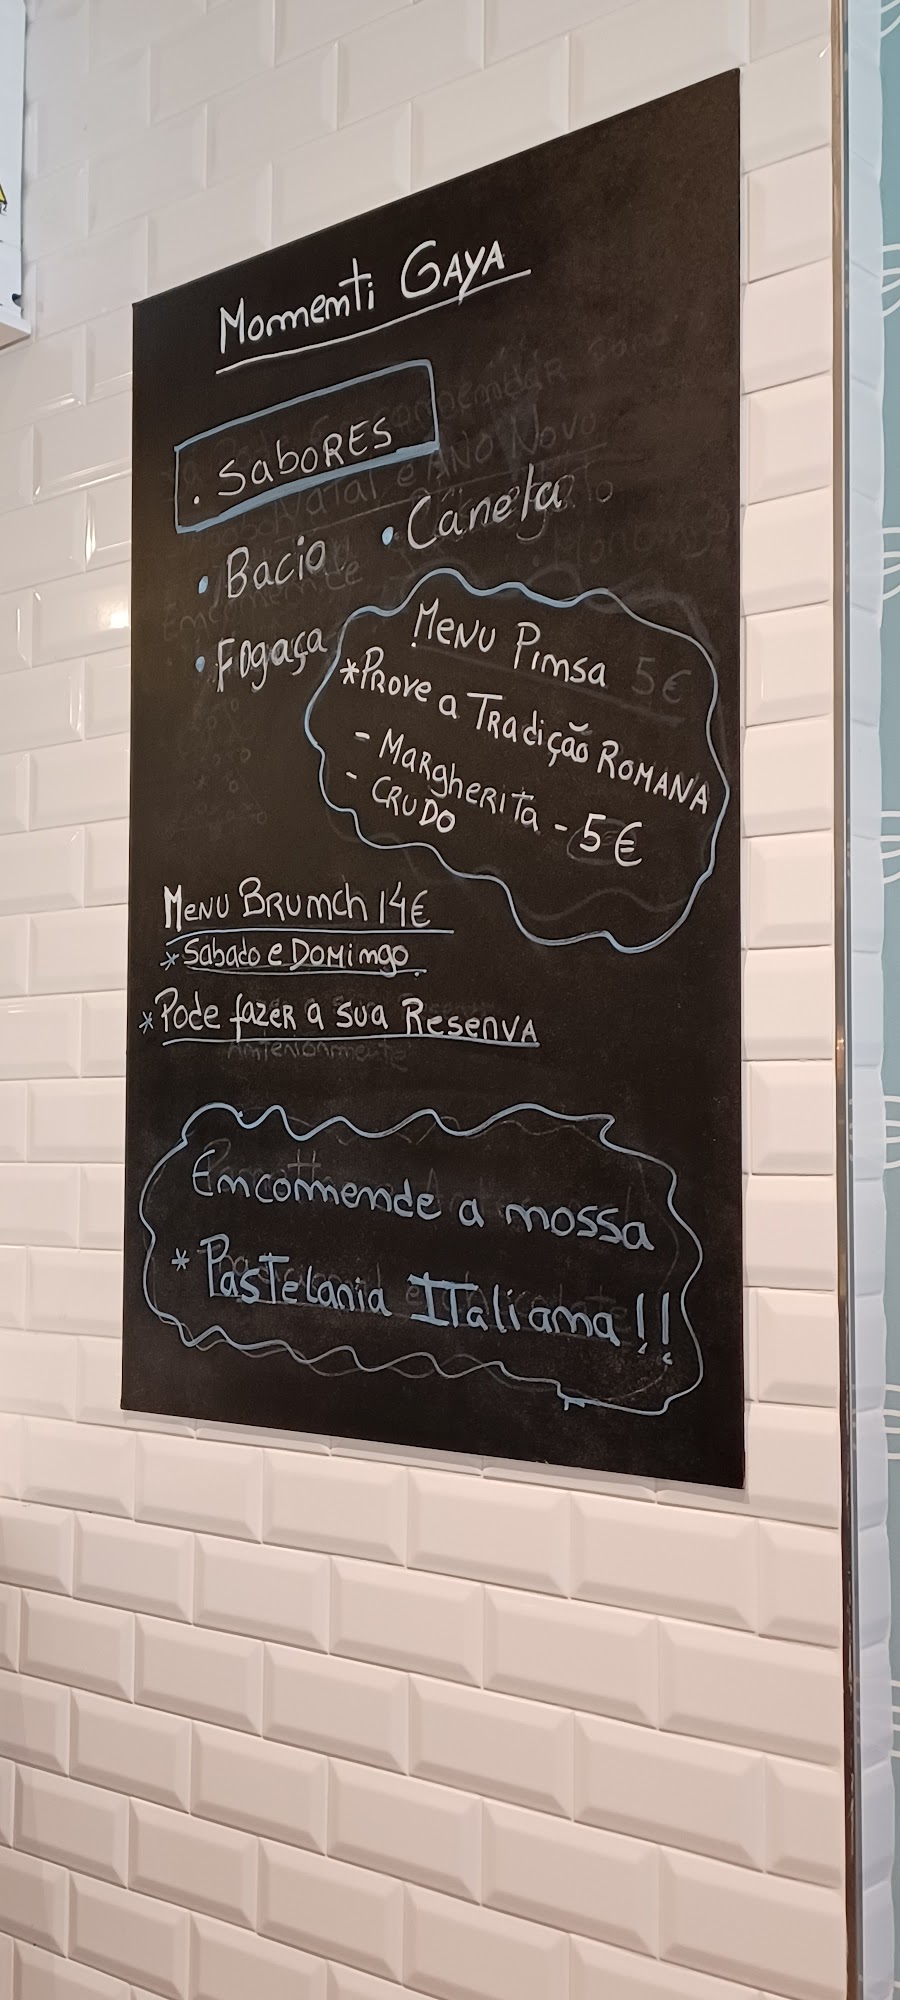 Mommenti GAYA
. SabORES
• Bacio
• Caneta
• Fogaça
MENU Pimsa 5€
*PRove a TRadição ROMANA
- MARghERiTA - 5€
- CRUDO
MENU BRUMCh 14€
* Sábado e DOMimgo
* Pode fazer a sua Reserva
Anteriormente
Emcommemde a mossa
* PasTelaria ITaliama!!